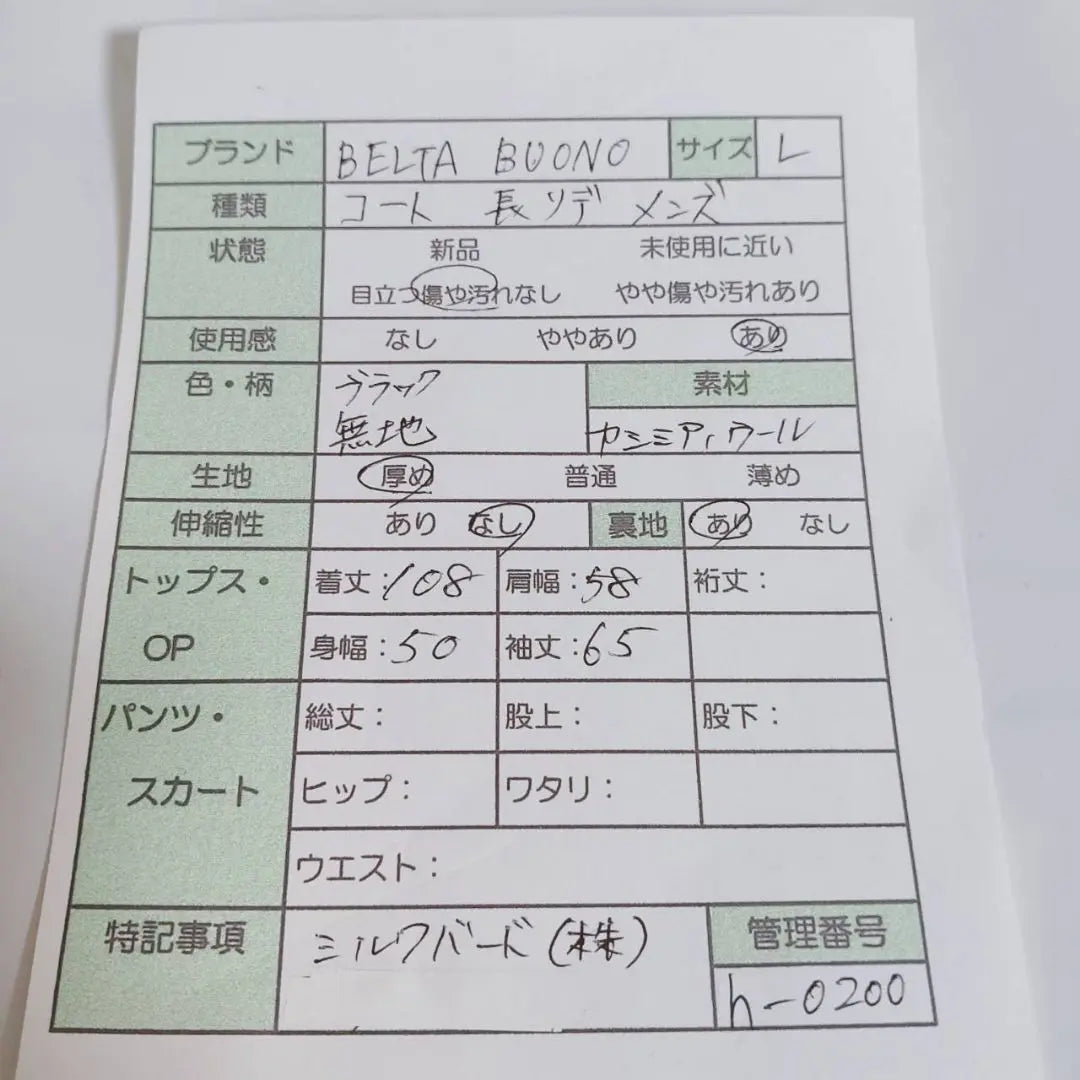 ブランド BELTA BUONO サイズ L
種類 コート 長ソデ メンズ
状態 新品 未使用に近い
目立つ傷や汚れなし やや傷や汚れあり
使用感 なし ややあり あり
色・柄 ブラック 素材
無地 カシミア,ウール
生地 厚め 普通 薄め
伸縮性 あり なし 裏地 あり なし
トップス・ 着丈:108 肩幅:58 裄丈:
OP 身幅:50 袖丈:65
パンツ・ 総丈: 股上: 股下:
スカート ヒップ: ワタリ:
ウエスト:
特記事項 ミルクバード(株) 管理番号
h-0200